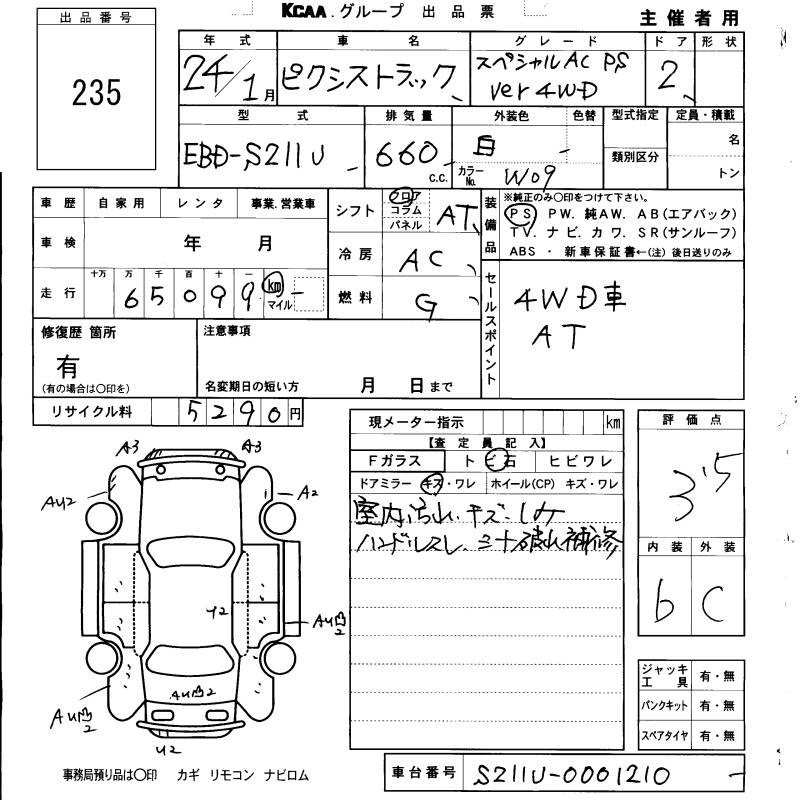 KCAA.グループ 出品票
主催者用
出品番号
235
年式 車名 グレード ドア 形状
24/1月 ピクシストラック スペシャルAC PS 2
ver 4WD
型式 排気量 外装色 色替 型式指定 定員・積載
EBD-S211U 660 c.c. 白 類別区分 名
カラーNo. W09 トン
車歴 自家用 レンタ 事業.営業車
シフト フロア コラム パネル AT
装備品 ※純正のみ○印をつけて下さい。
PS PW. 純AW. AB(エアバック)
TV. ナビ. カワ. SR(サンルーフ)
ABS ・ 新車保証書←(注) 後日送りのみ
車検 年 月
冷房 AC
走行 十万 万 千 百 十 一
65099 km マイル
燃料 G
セールスポイント 4WD車
AT
修復歴 箇所
有
(有の場合は○印を)
注意事項
名変期日の短い方 月 日まで
リサイクル料 5290円
現メーター指示 km
【査定員記入】
Fガラス ト ビ石 ヒビワレ
ドアミラー キズ・ワレ ホイール(CP) キズ・ワレ
室内汚れ・キズ・しみ
ハンドルスレ
補修
評価点
3.5
内装 外装
b C
A3 A3
AU2 A2
Y2
AU凹2
AU凹2
AU凹2
Y2
ジャッキ工具 有・無
パンクキット 有・無
スペアタイヤ 有・無
事務局預り品は○印 カギ リモコン ナビロム
車台番号 S211U-0001210